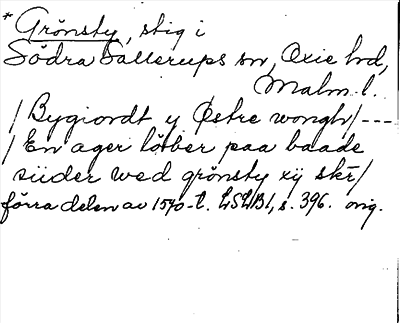 * Grönsty, stig i
Södra Sallerups sn, Oxie hd,
Malm l.
/ Bygiordt y Østre wongh/ ---
/ En ager löber paa baade
siider wed grönsty xij skr/
förra delen av 1570-t. LSLB1, s. 396. orig.